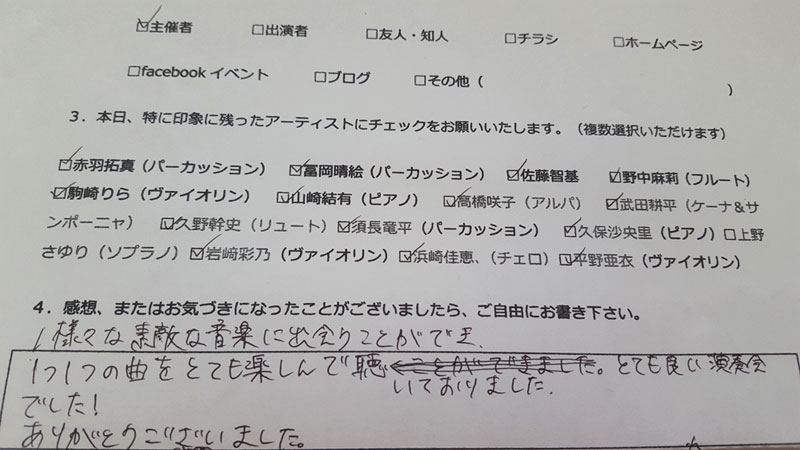 ☑主催者 □出演者 □友人・知人 □チラシ □ホームページ
□facebook イベント □ブログ □その他（ ）
3．本日、特に印象に残ったアーティストにチェックをお願いいたします。（複数選択いただけます）
☑赤羽拓真（パーカッション） ☑冨岡晴絵（パーカッション） ☑佐藤智基 ☑野中麻莉（フルート）
☑駒崎りら（ヴァイオリン） ☑山崎結有（ピアノ） ☑高橋咲子（アルパ） ☑武田耕平（ケーナ＆サ
ンポーニャ） ☑久野幹史（リュート）☑須長竜平（パーカッション） ☑久保沙央里（ピアノ）□上野
さゆり（ソプラノ）☑岩崎彩乃（ヴァイオリン）☑浜崎佳恵、（チェロ）☑平野亜衣（ヴァイオリン）
4．感想、またはお気づきになったことがございましたら、ご自由にお書き下さい。
様々な素敵な音楽に出会うことができ、
1つ1つの曲をとても楽しんで聴くことができました。とても良い演奏会
いておりました。
でした！
ありがとうございました。